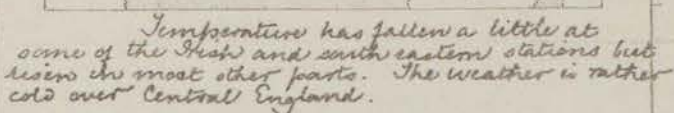 Temperature has fallen a little at
some of the Irish and south eastern stations but
risen in most other parts. The weather is rather
cold over Central England.